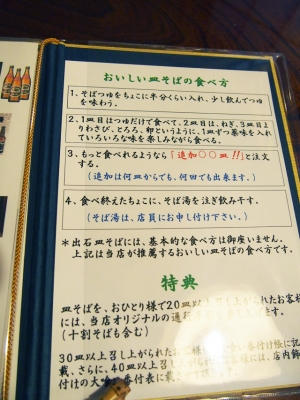 おいしい皿そばの食べ方
1、そばつゆをちょこに半分くらい入れ、少し飲んでつゆ
を味わう。
2、1皿目はつゆだけで食べて、2皿目は、ねぎ、3皿目よ
りわさび、とろろ、卵というように、1皿ずつ薬味を入れ
ていろいろな味を楽しみながら食べる。
3、もっと食べれるようなら「追加○○皿!!」と注文
する。
(追加は何皿からでも、何回でも出来ます。)
4、食べ終えたちょこに、そば湯を注ぎ飲み干す。
(そば湯は、店員にお申し付け下さい。)
*出石皿そばには、基本的な食べ方は御座いません。
上記は当店が推薦するおいしい皿そばの食べ方です。
特典
皿そばを、おひとり様で20皿以上召し上がられたお客様
には、当店オリジナルの通行
(十割そばも含む)
30皿以上召し上がられたお客様 番付帳に記
載、さらに、40皿以上召し 様には、店内飾
付けの大 番付表に載